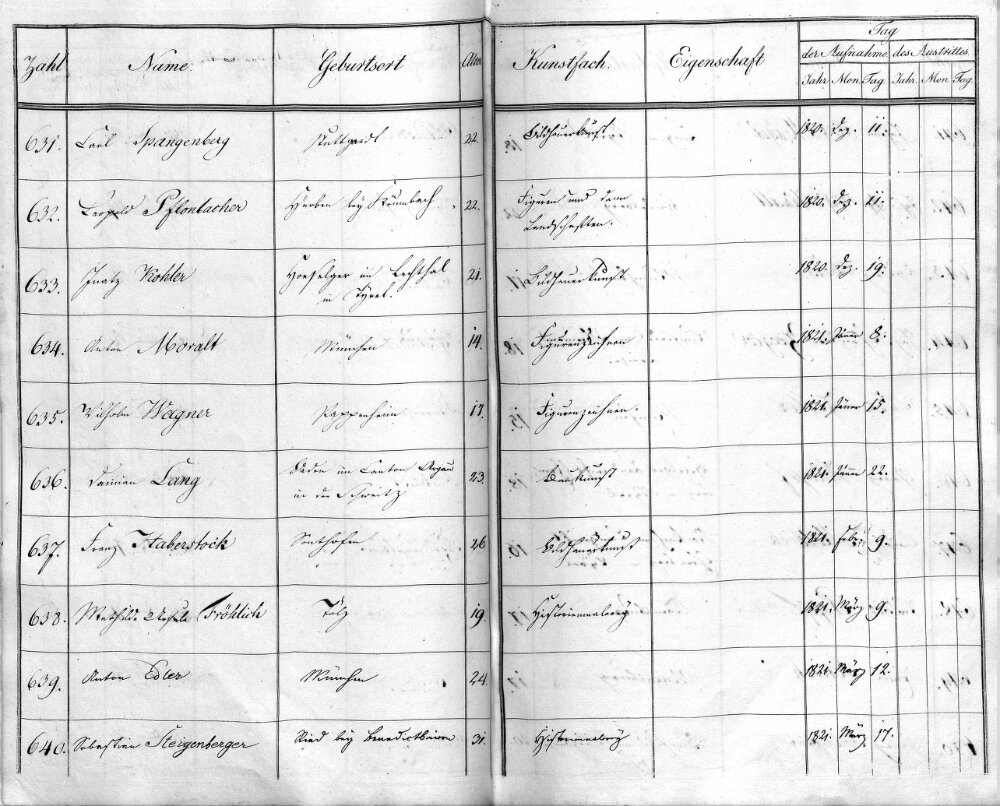 Tag
Zahl Name. Geburtsort Alter Kunstfach. Eigenschaft der Aufnahme. des Austrittes.
Jahr. Mon. Tag. Jahr. Mon. Tag.
631. Carl Spangenberg Stuttgardt 22. Bildhauerkunst. 1820. Dez. 11.
632. Leopold 22. Figuren und dem 1820. Dez. 11.
Landschaften.
633. Ignatz Kohler im Lechthal 21. Bildhauerkunst 1820. Dez. 19.
in Tyrol.
634. Anton Moralt München 14. Figurenzeichnen 1821. Jänner 8.
635. Wilhelm Wagner Pappenheim 17. Figurenzeichnen. 1821. Jänner 15.
636. Damian Lang Baden im Canton Argau 23. Baukunst 1821. Jänner 22.
in der Schweitz
637. Franz Haberstock Sonthofen. 26 Bildhauerkunst 1821. Febr. 9.
638. Mathilde Fröhlich Tölz 19. Historienmalerey 1821. März 9.
639. Anton Edler München 24. 1821. März 12.
640. Sebastian Steigenberger Ried bey Benedictbeuern 31. Historienmalerey 1821. März 17.